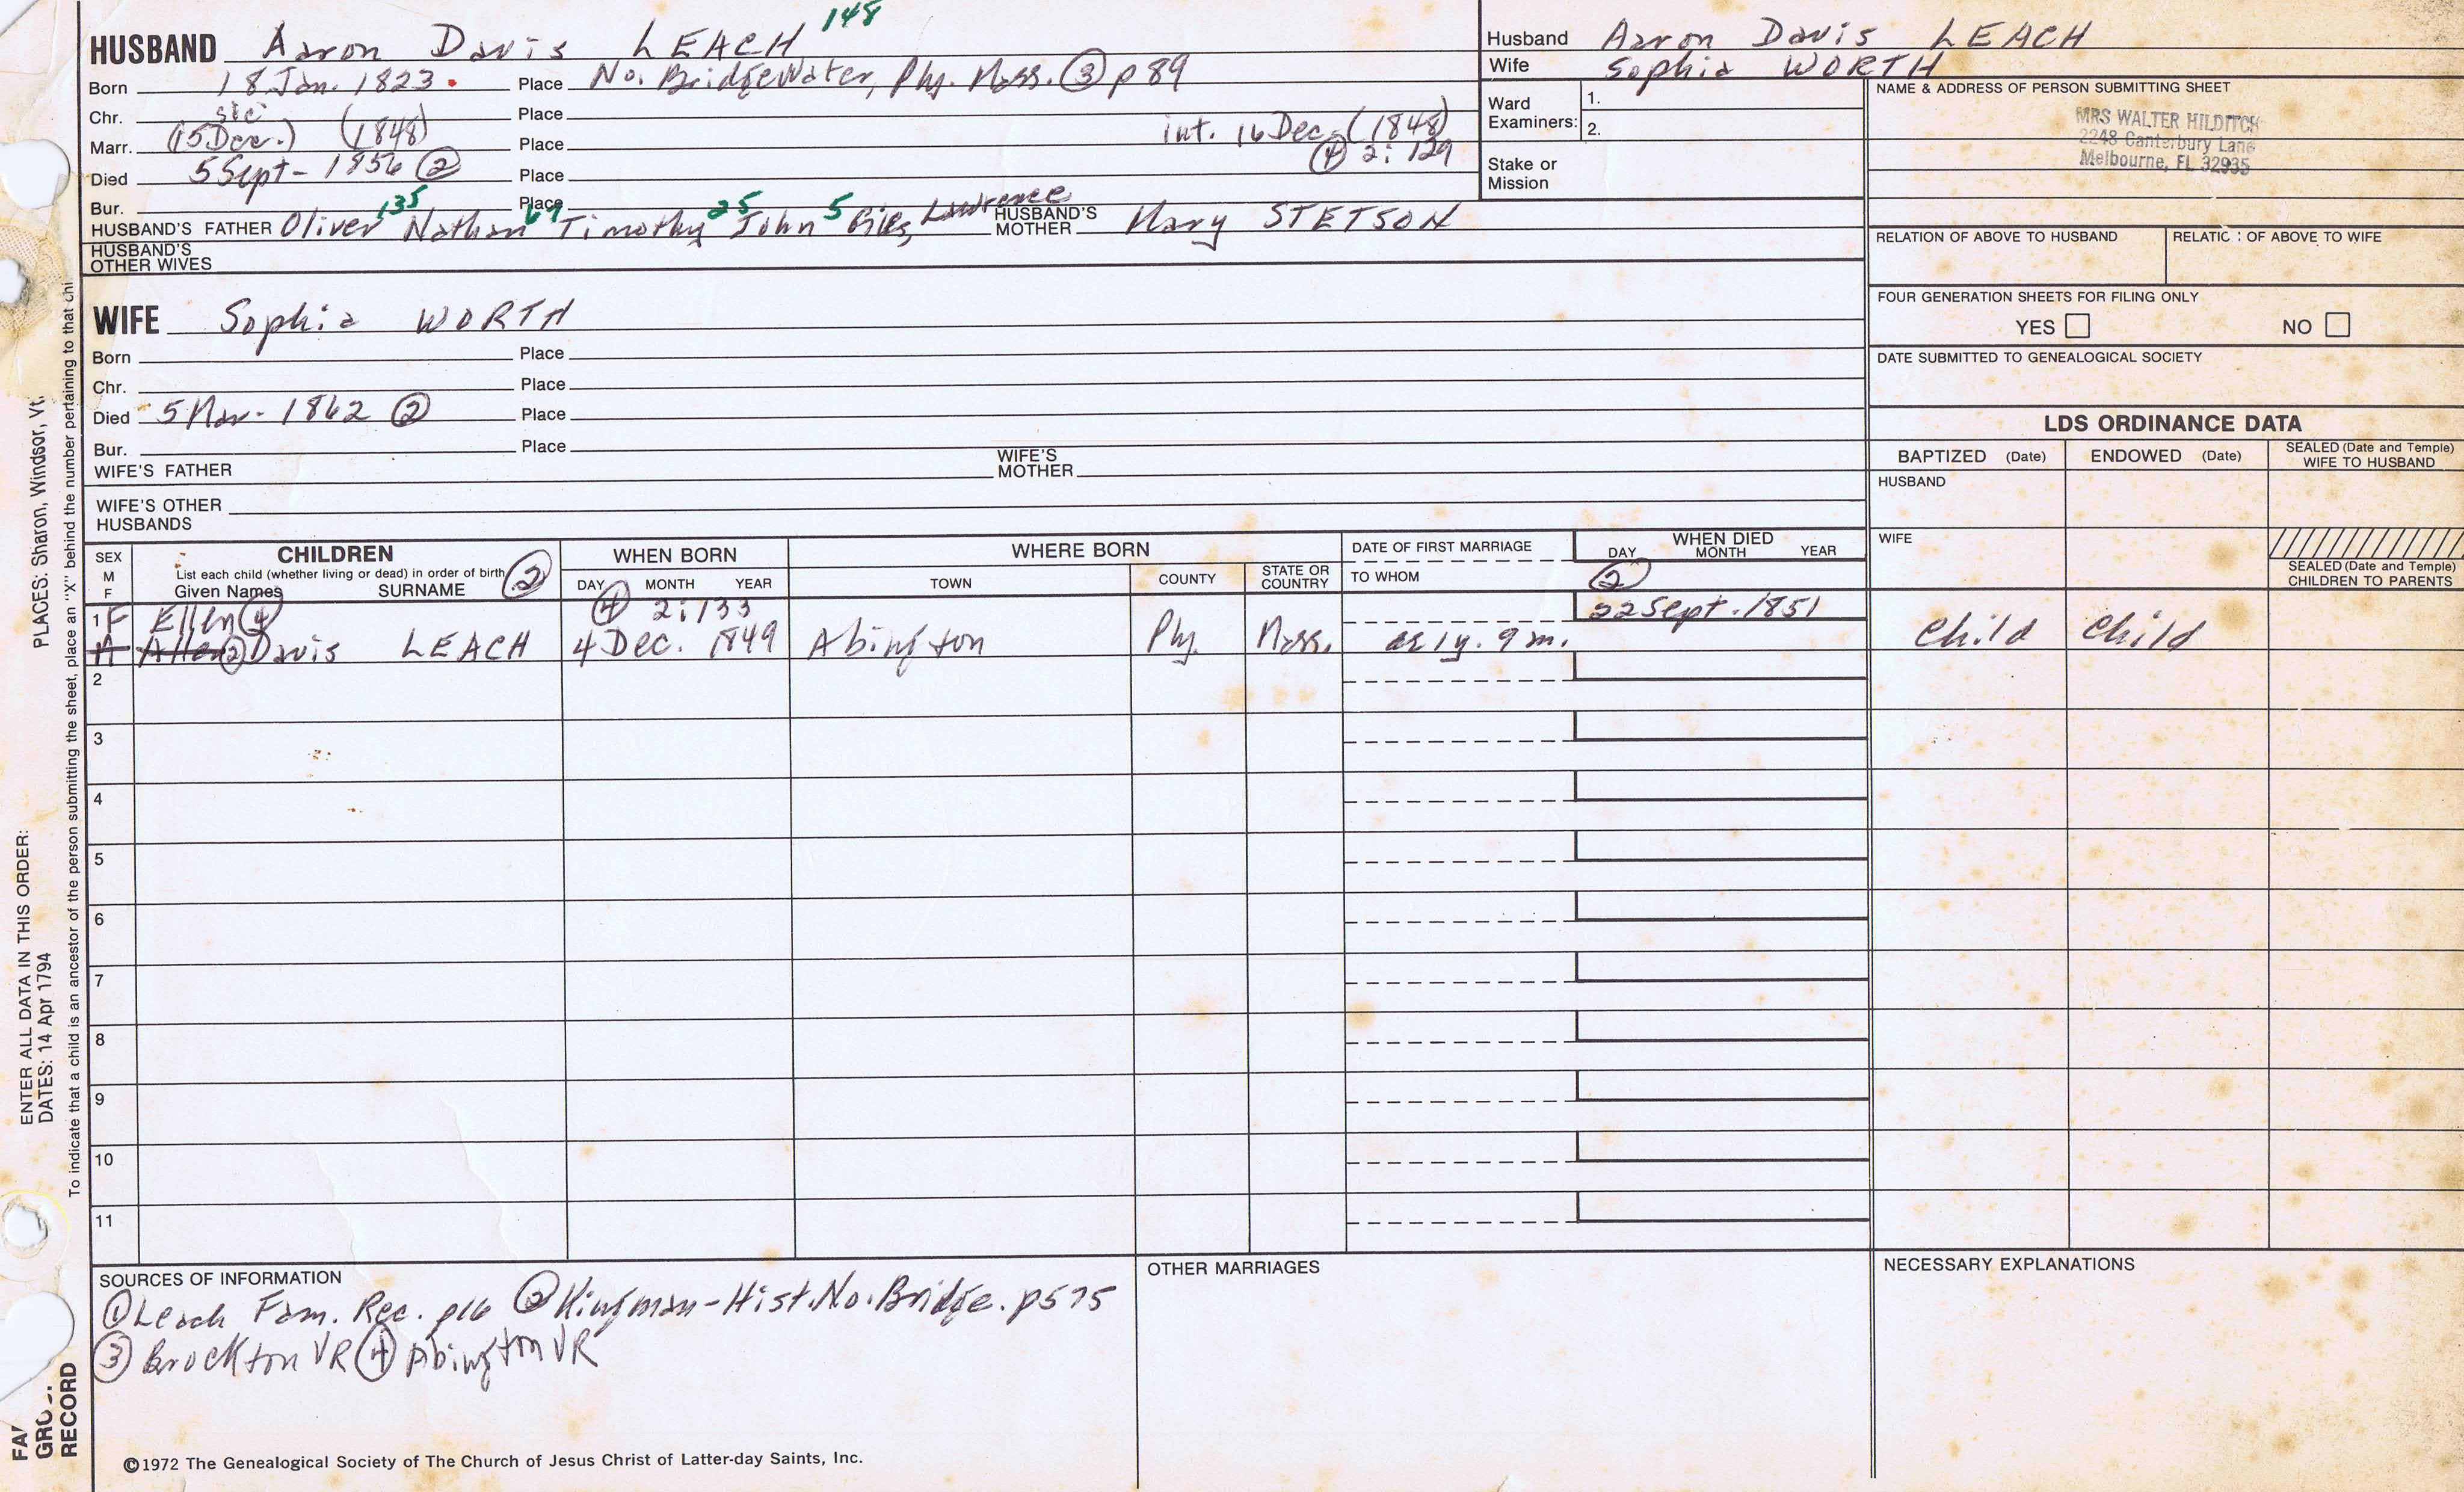 HUSBAND Aaron Davis LEACH 148
Born 18 Jan. 1823 Place No. Bridgewater, Ply. Mass. ③ p 89
Chr. sic Place
Marr. (15 Dec.) (1848) Place int. 16 Dec. (1848)
④ 2: 129
Died 5 Sept - 1856 ② Place
Bur. Place
HUSBAND'S FATHER Oliver 135 Nathan 67 Timothy 25 John 5 Giles, Lawrence HUSBAND'S MOTHER Mary STETSON
HUSBAND'S OTHER WIVES
Husband Aaron Davis LEACH
Wife Sophia WORTH
Ward Examiners: 1.
2.
Stake or Mission
NAME & ADDRESS OF PERSON SUBMITTING SHEET
MRS WALTER HILDITCH
2248 Canterbury Lane
Melbourne, FL 32935
RELATION OF ABOVE TO HUSBAND RELATIC : OF ABOVE TO WIFE
FOUR GENERATION SHEETS FOR FILING ONLY
YES NO
DATE SUBMITTED TO GENEALOGICAL SOCIETY
WIFE Sophia WORTH
Born Place
Chr. Place
Died 5 Mar - 1862 ② Place
Bur. Place
WIFE'S FATHER WIFE'S MOTHER
WIFE'S OTHER HUSBANDS
LDS ORDINANCE DATA
BAPTIZED (Date) ENDOWED (Date) SEALED (Date and Temple) WIFE TO HUSBAND
HUSBAND
WIFE
SEALED (Date and Temple) CHILDREN TO PARENTS
SEX M F CHILDREN
List each child (whether living or dead) in order of birth ②
Given Names SURNAME
WHEN BORN
DAY MONTH YEAR
WHERE BORN
TOWN COUNTY STATE OR COUNTRY
DATE OF FIRST MARRIAGE
TO WHOM
WHEN DIED
DAY MONTH YEAR
②
1 F Ellen ④ ④ 2:133 22 Sept. 1851
M Allen ② Davis LEACH 4 Dec. 1849 Abington Ply. Mass. ae 1y. 9 m. Child Child
2
3
4
5
6
7
8
9
10
11
SOURCES OF INFORMATION
① Leach Fam. Rec. p16 ② Kingman - Hist. No. Bridge. p575
③ Brockton VR ④ Abington VR
OTHER MARRIAGES
NECESSARY EXPLANATIONS
©1972 The Genealogical Society of The Church of Jesus Christ of Latter-day Saints, Inc.
ENTER ALL DATA IN THIS ORDER:
DATES: 14 Apr 1794
PLACES: Sharon, Windsor, Vt.
To indicate that a child is an ancestor of the person submitting the sheet, place an "X" behind the number pertaining to that chi
RECORD